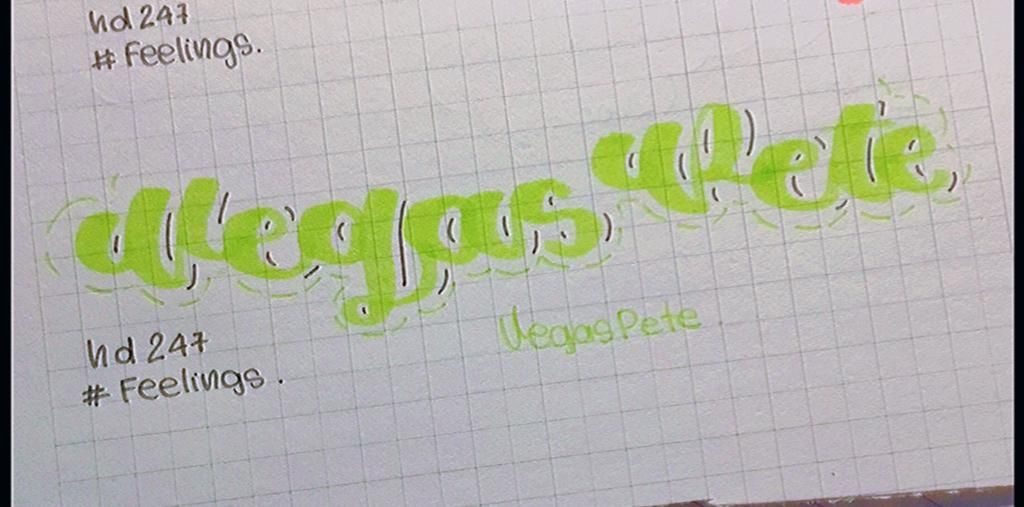 hd 247
# Feelings.
Vegas Pete
VegasPete
hd 247
# Feelings.